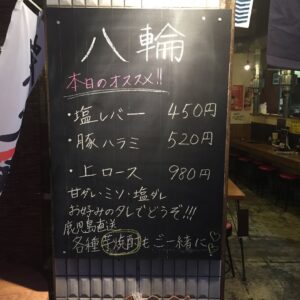 八輪
本日のオススメ!!
・塩レバー 450円
・豚ハラミ 520円
・上ロース 980円
甘ダレ・ミソ・塩ダレ
お好みのタレでどうぞ!!!
鹿児島直送
各種芋焼酎もご一緒に♡